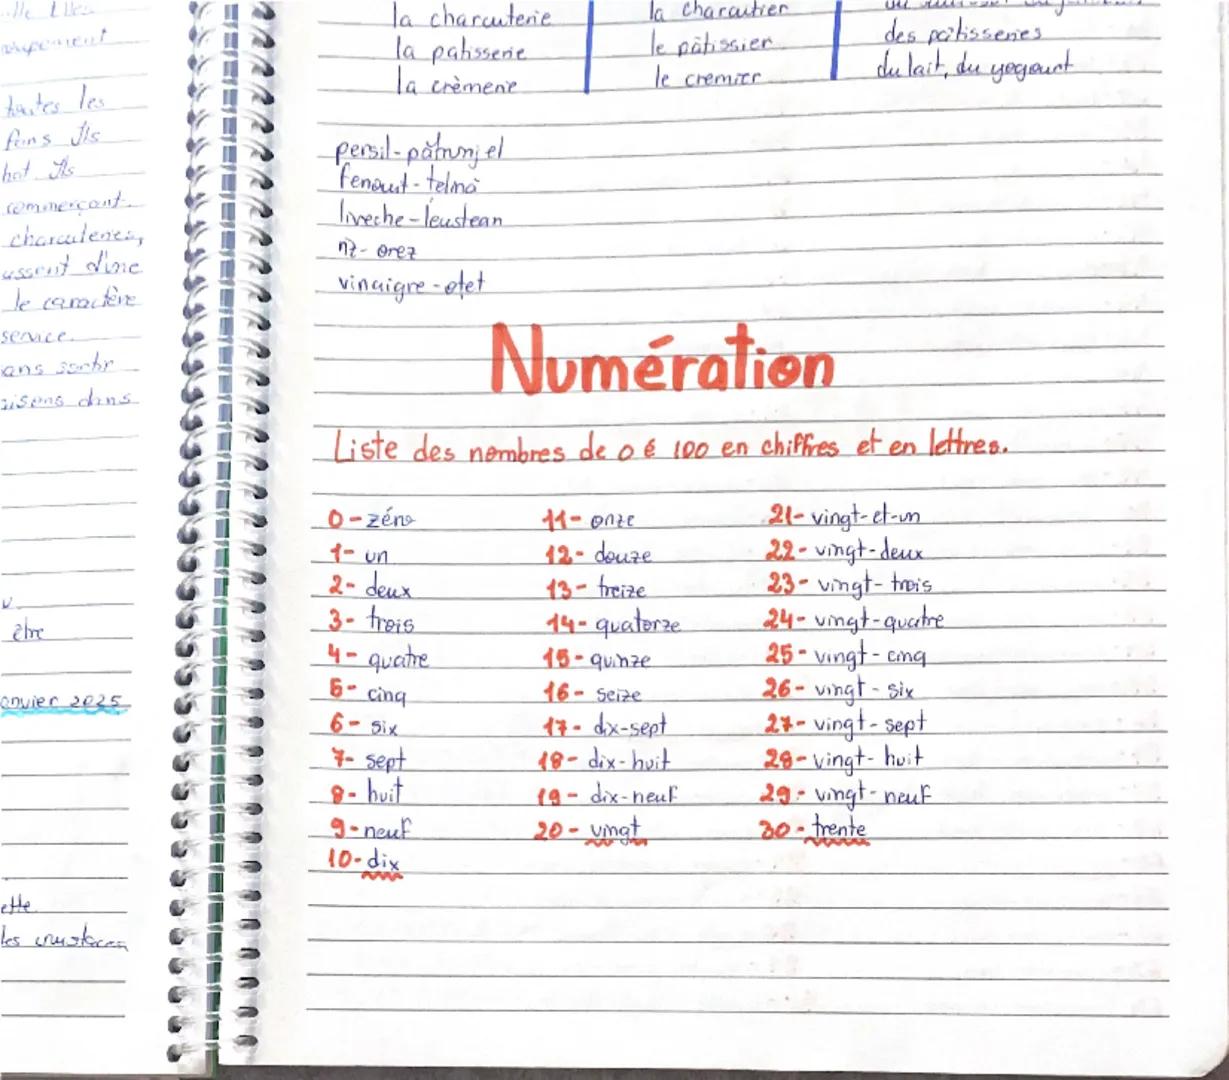 toutes les
commerçant.
le caractère
service.
être
les crustacea
la charcuterie la charcutier
la patisserie le pâtissier des patisseries
la crèmerie le cremier du lait, du yogourt
persil-pătrunjel
fenout-telină
liveche-leustean
riz-orez
vinaigre-oțet
Numération
Liste des nombres de 0 é 100 en chiffres et en lettres.
0-zéro 11-onze 21-vingt-et-un
1-un 12-douze 22-vingt-deux
2-deux 13-treize 23-vingt-trois
3-trois 14-quatorze 24-vingt-quatre
4-quatre 15-quinze 25-vingt-cinq
5-cinq 16-seize 26-vingt-six
6-six 17-dix-sept 27-vingt-sept
7-sept 18-dix-huit 28-vingt-huit
8-huit 19-dix-neuf 29-vingt-neuf
9-neuf 20-vingt 30-trente
10-dix